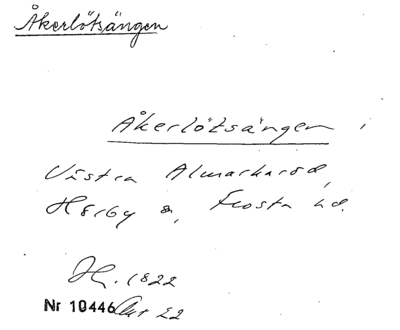 Åkerlötsängen
Åkerlötsängen i
Västra Almarkaröd,
Hörby s, Frosta hd.
H. 1822
Nr 10446 Akt 22